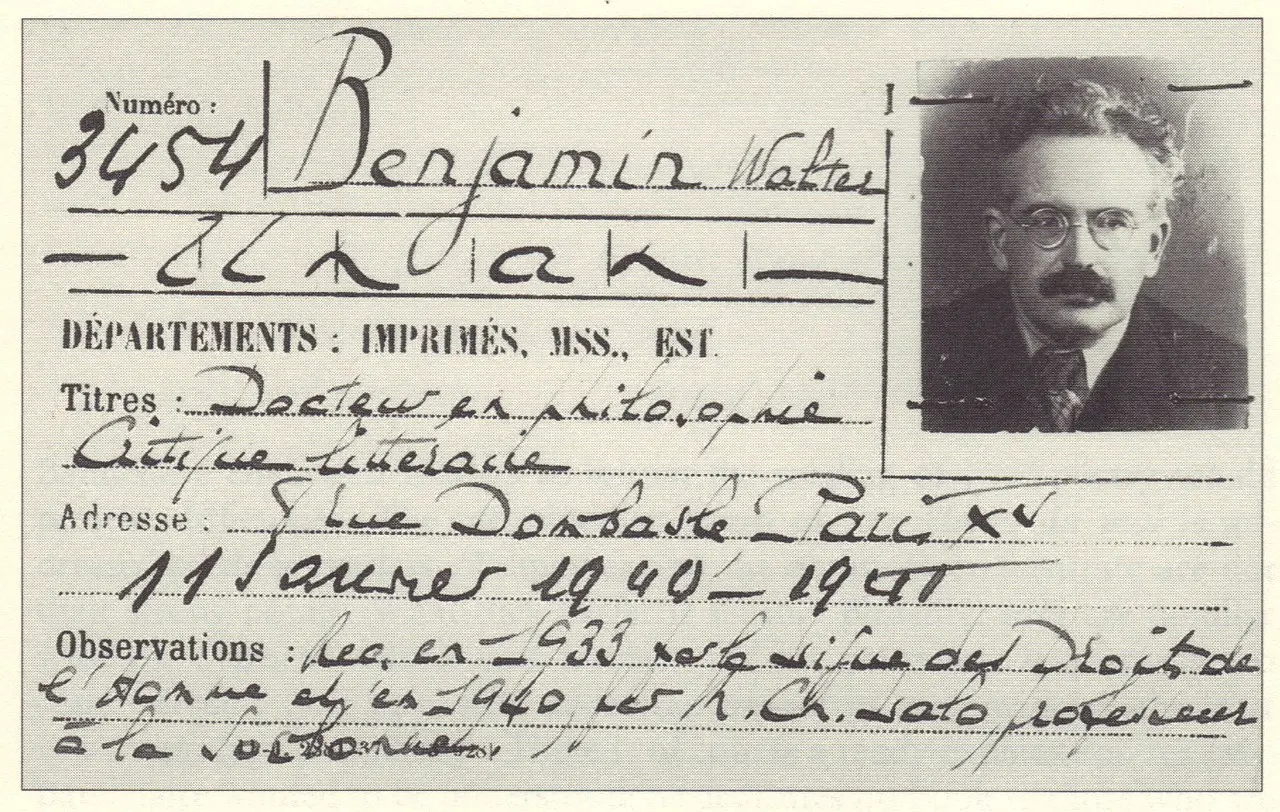 Numéro :
3454 Benjamin Walter
1 an
DÉPARTEMENTS : IMPRIMÉS, MSS., EST.
Titres : Docteur en philosophie
Critique littéraire
Adresse : rue Dombasle Paris XV
11 Janvier 1940 - 1941
Observations : Rec. en 1933 par la Ligue des Droits de
l'Homme et en 1940 par M. Ch. Lalo professeur
à la Sorbonne